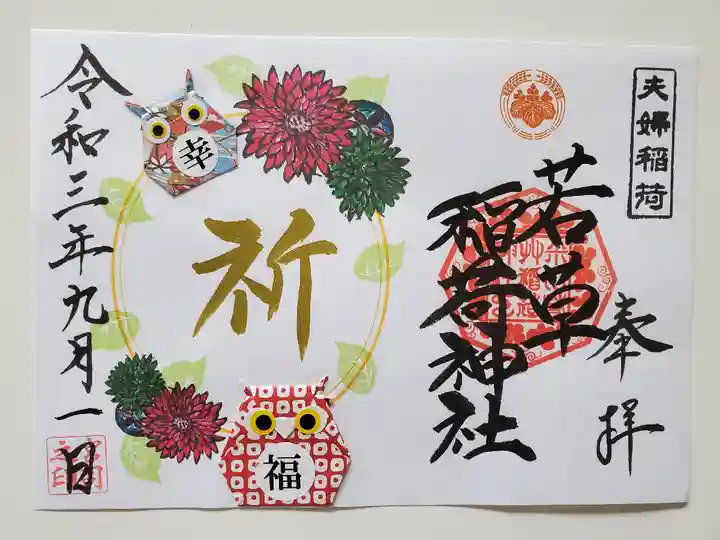 夫婦稲荷
奉拝
若草
稲荷神社
祈
幸
福
令和三年九月一日